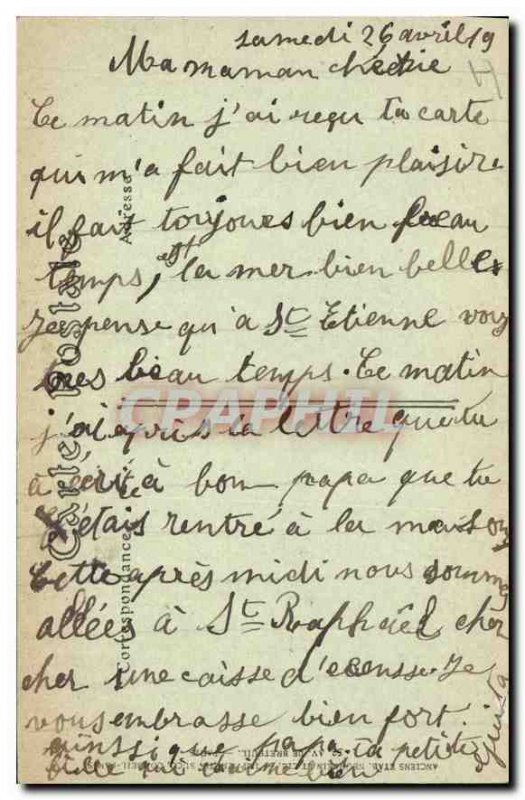 samedi 26 avril 19
Ma maman chérie
H
Ce matin j'ai reçu ta carte
qui m'a fait bien plaisire
il fait toujours bien beau
temps, est la mer bien belle
Je pense qu'a St Etienne vous
bien beau temps. Ce matin
j'ai apris ta lettre que tu
à ecrit à bon papa que tu
étais rentré à la maison
Cette après midi nous somme
allées à St Raphaël cher
cher une caisse Je
vous embrasse bien fort.
ainssi que papa. ta petite
fille qui t'aime bien
Carte Postale
Adresse
Correspondance
CPAPHIL